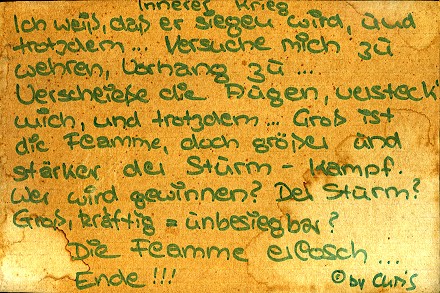 Inneres Krieg
Ich weiß, daß er siegen wird, und
trotzdem... Versuche mich zu
wehren, Vorhang zu ...
Verschließe die Augen, versteck
mich, und trotzdem ... Groß ist
die Flamme, doch größer und
stärker der Sturm - Kampf.
Wer wird gewinnen? Der Sturm?
Groß, kräftig = unbesiegbar?
Die Flamme erlosch ...
Ende!!! © by Chris